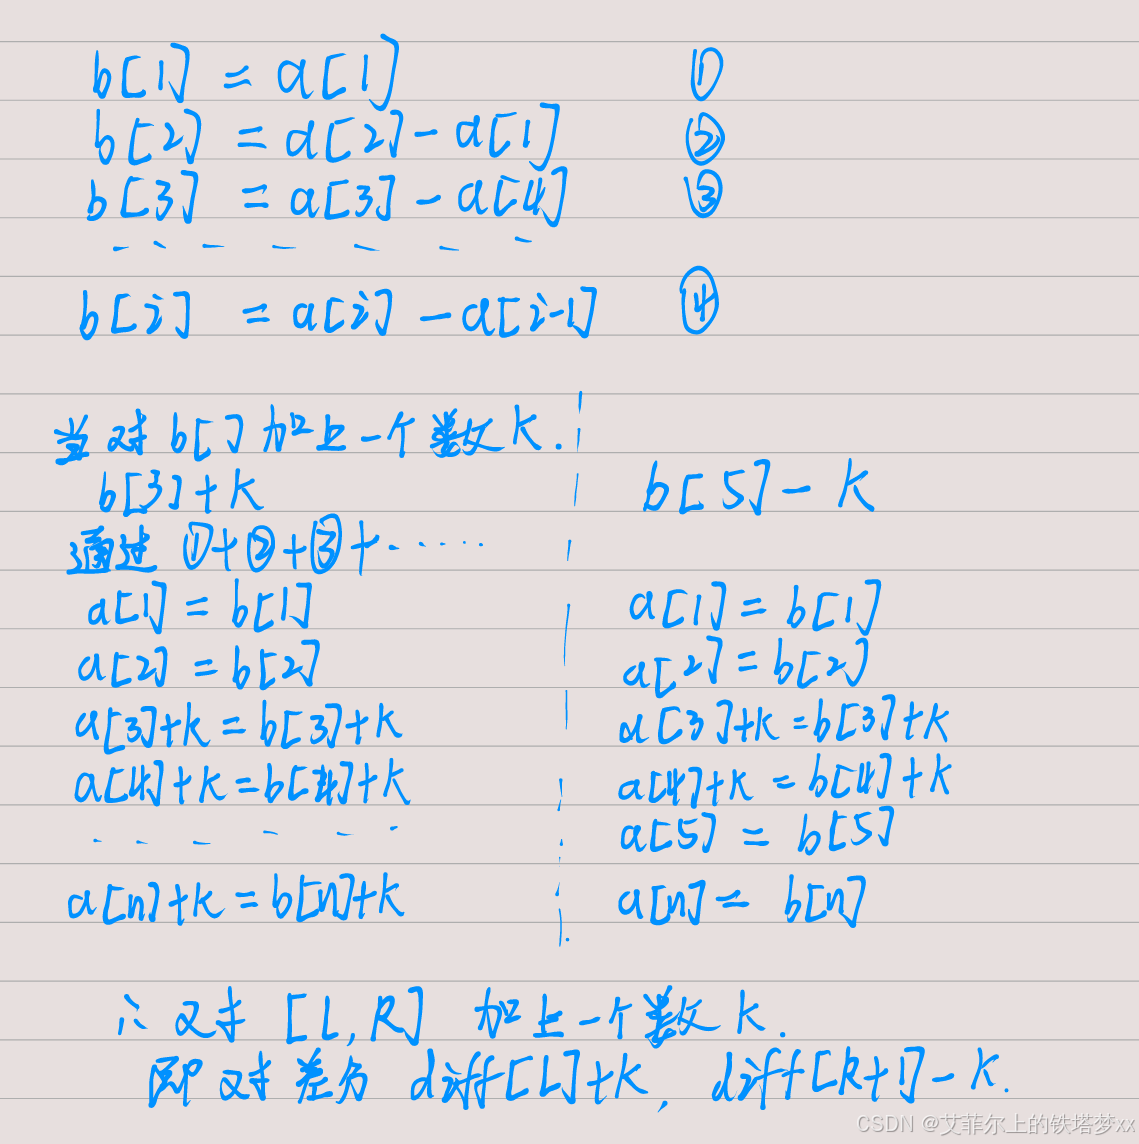 b[1] = a[1] ①
b[2] = a[2] - a[1] ②
b[3] = a[3] - a[4] ③
- - - - - - -
b[i] = a[i] - a[i-1] ④
当对b[]加上一个数k.
b[3]+k
通过 ①+②+③+······
a[1] = b[1]
a[2] = b[2]
a[3]+k = b[3]+k
a[4]+k = b[4]+k
- - - - - -
a[n]+k = b[n]+k
b[5] - k
a[1] = b[1]
a[2] = b[2]
a[3]+k = b[3]+k
a[4]+k = b[4]+k
a[5] = b[5]
a[n] = b[n]
∴ 对 [L,R] 加上一个数k.
即对差分 diff[L]+k, diff[R+1]-k.
CSDN @艾菲尔上的铁塔梦xx